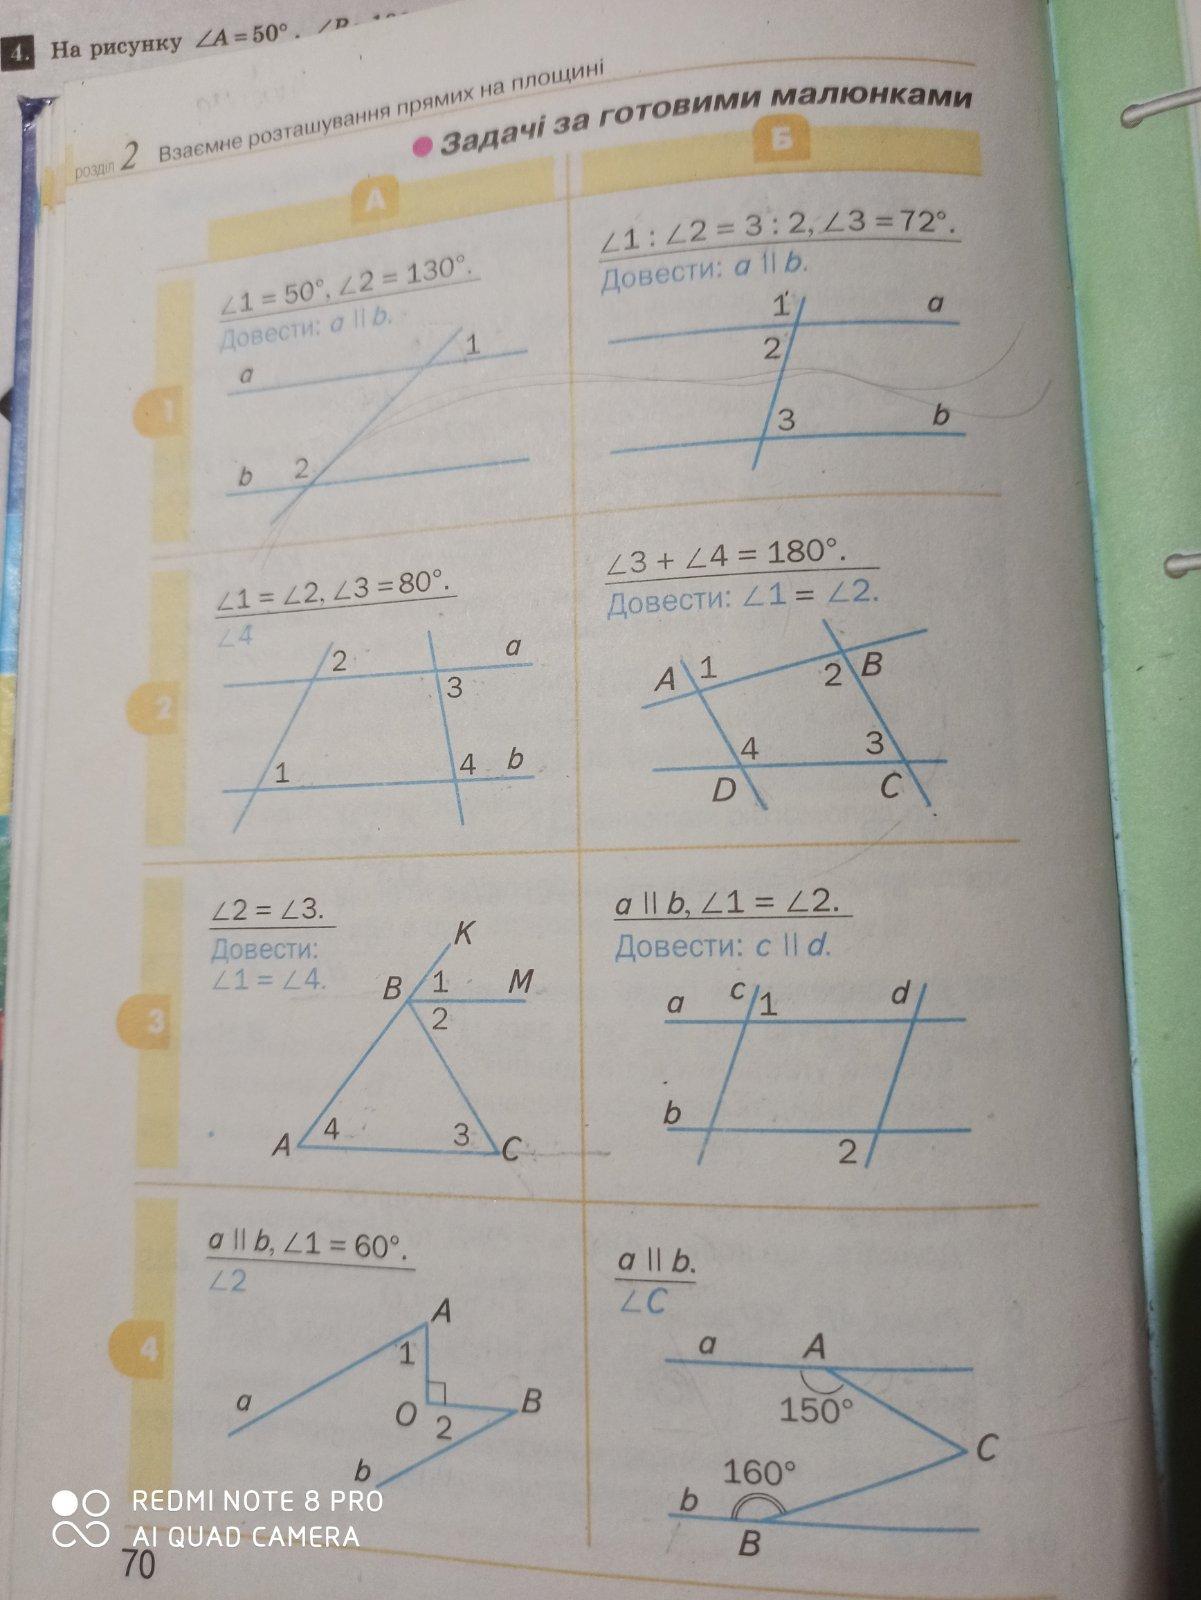 4. На рисунку ∠A = 50°.
розділ 2 Взаємне розташування прямих на площині
Задачі за готовими малюнками
А
Б
1
∠1 = 50°, ∠2 = 130°.
Довести: a || b.
a
1
b
2
∠1 : ∠2 = 3 : 2, ∠3 = 72°.
Довести: a || b.
1
a
2
3
b
2
∠1 = ∠2, ∠3 = 80°.
∠4
2
a
3
1
4
b
∠3 + ∠4 = 180°.
Довести: ∠1 = ∠2.
A
1
2
B
4
3
D
C
3
∠2 = ∠3.
Довести:
∠1 = ∠4.
K
B
1
M
2
A
4
3
C
a || b, ∠1 = ∠2.
Довести: c || d.
a
c
1
d
b
2
4
a || b, ∠1 = 60°.
∠2
A
1
a
O
2
B
b
a || b.
∠C
a
A
150°
C
160°
b
B
REDMI NOTE 8 PRO
AI QUAD CAMERA
70